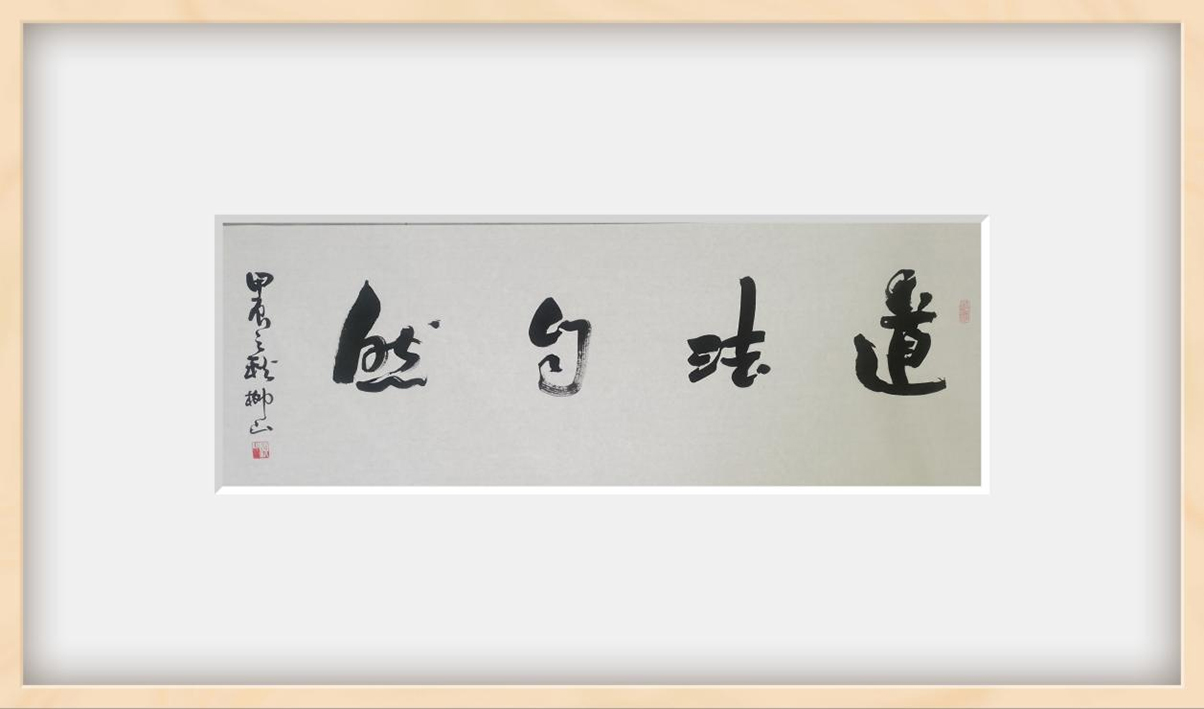 道法自然
甲辰之秋柳山